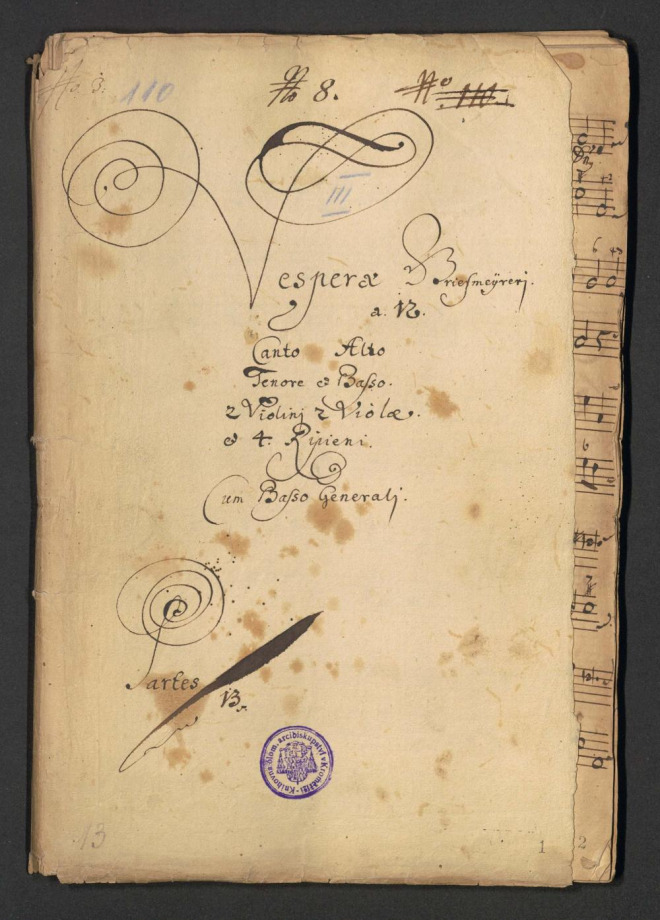 No. 8.
110
No 8.
No 110.
III
Vesperæ Briefmeÿrerj.
a. 12.
Canto Alto
Tenore et Basso.
2 Violinj 2 Violæ.
et 4. Ripieni.
Cum Basso Generalj.
Partes
13.
Knihovna Olom. arcibiskupství v Kroměříži
13
1
2